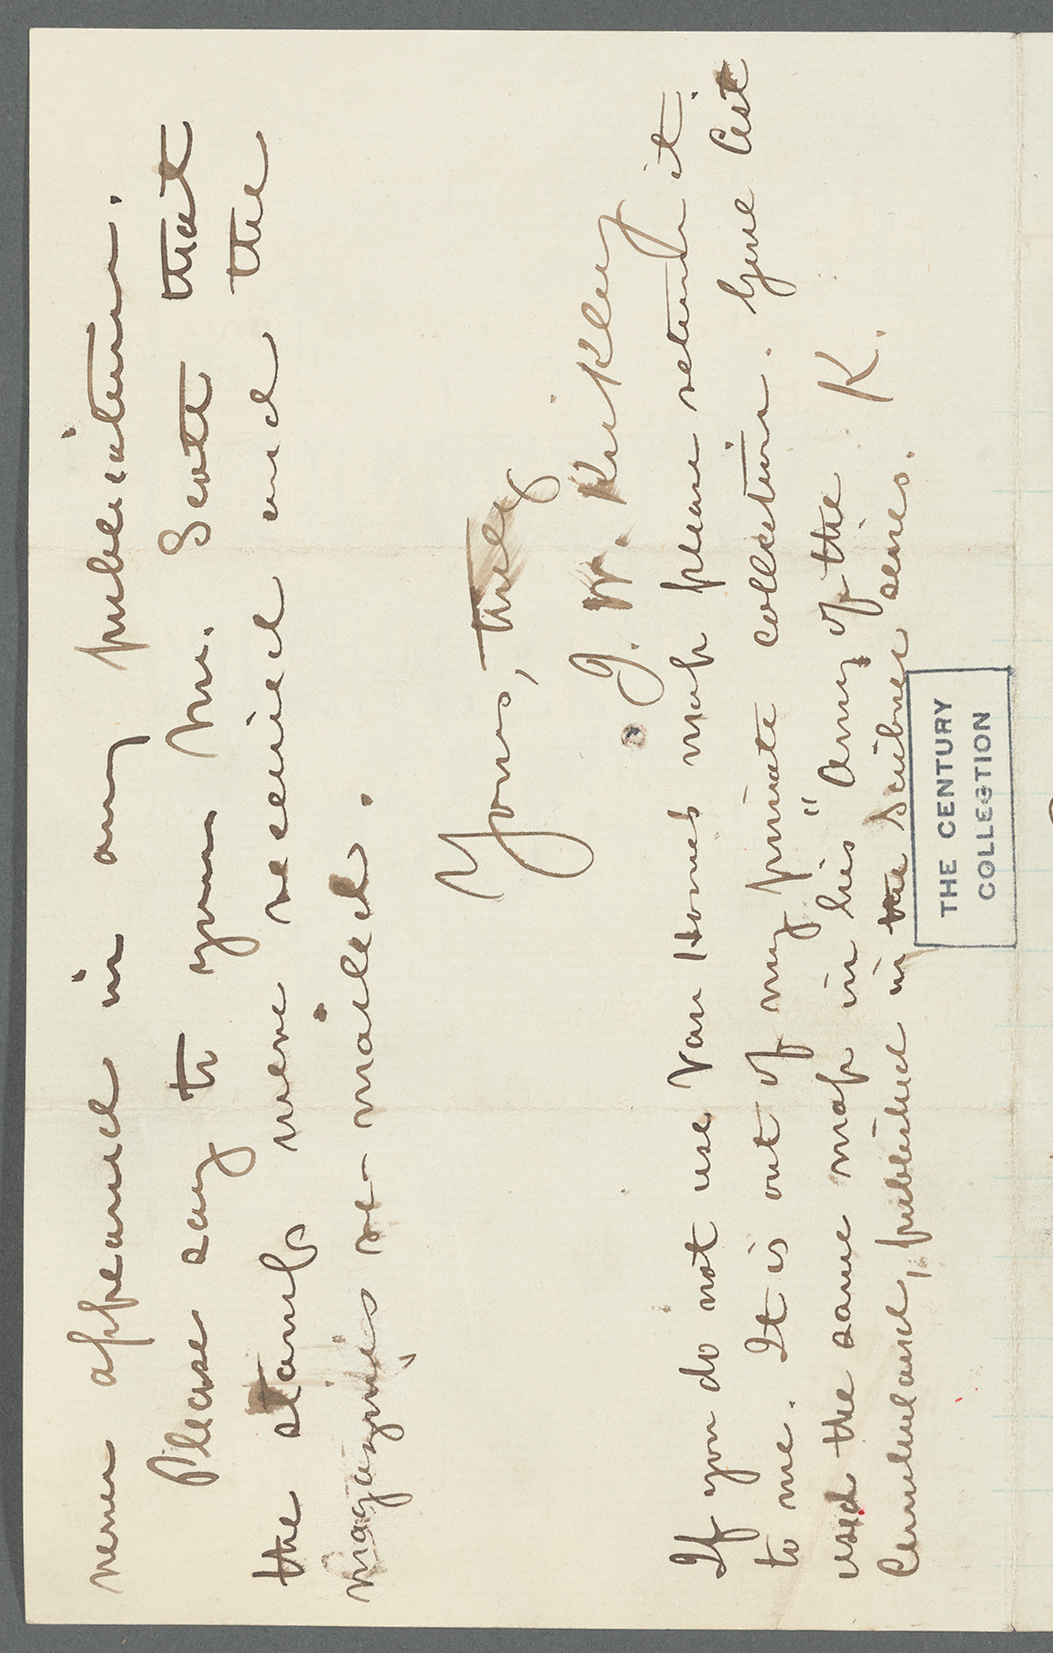 never appeared in any publication.
Please say to your Mr. Scott that
the stamps were received and the
magazines re-mailed.
Yours, truly
J. W. Kirkley
If you do not use Van Horne's map please return it
to me. It is out of my private collection. Genl Cist
used the same map in his "Army of the
Cumberland, published in the Scribner series. K.
THE CENTURY
COLLECTION